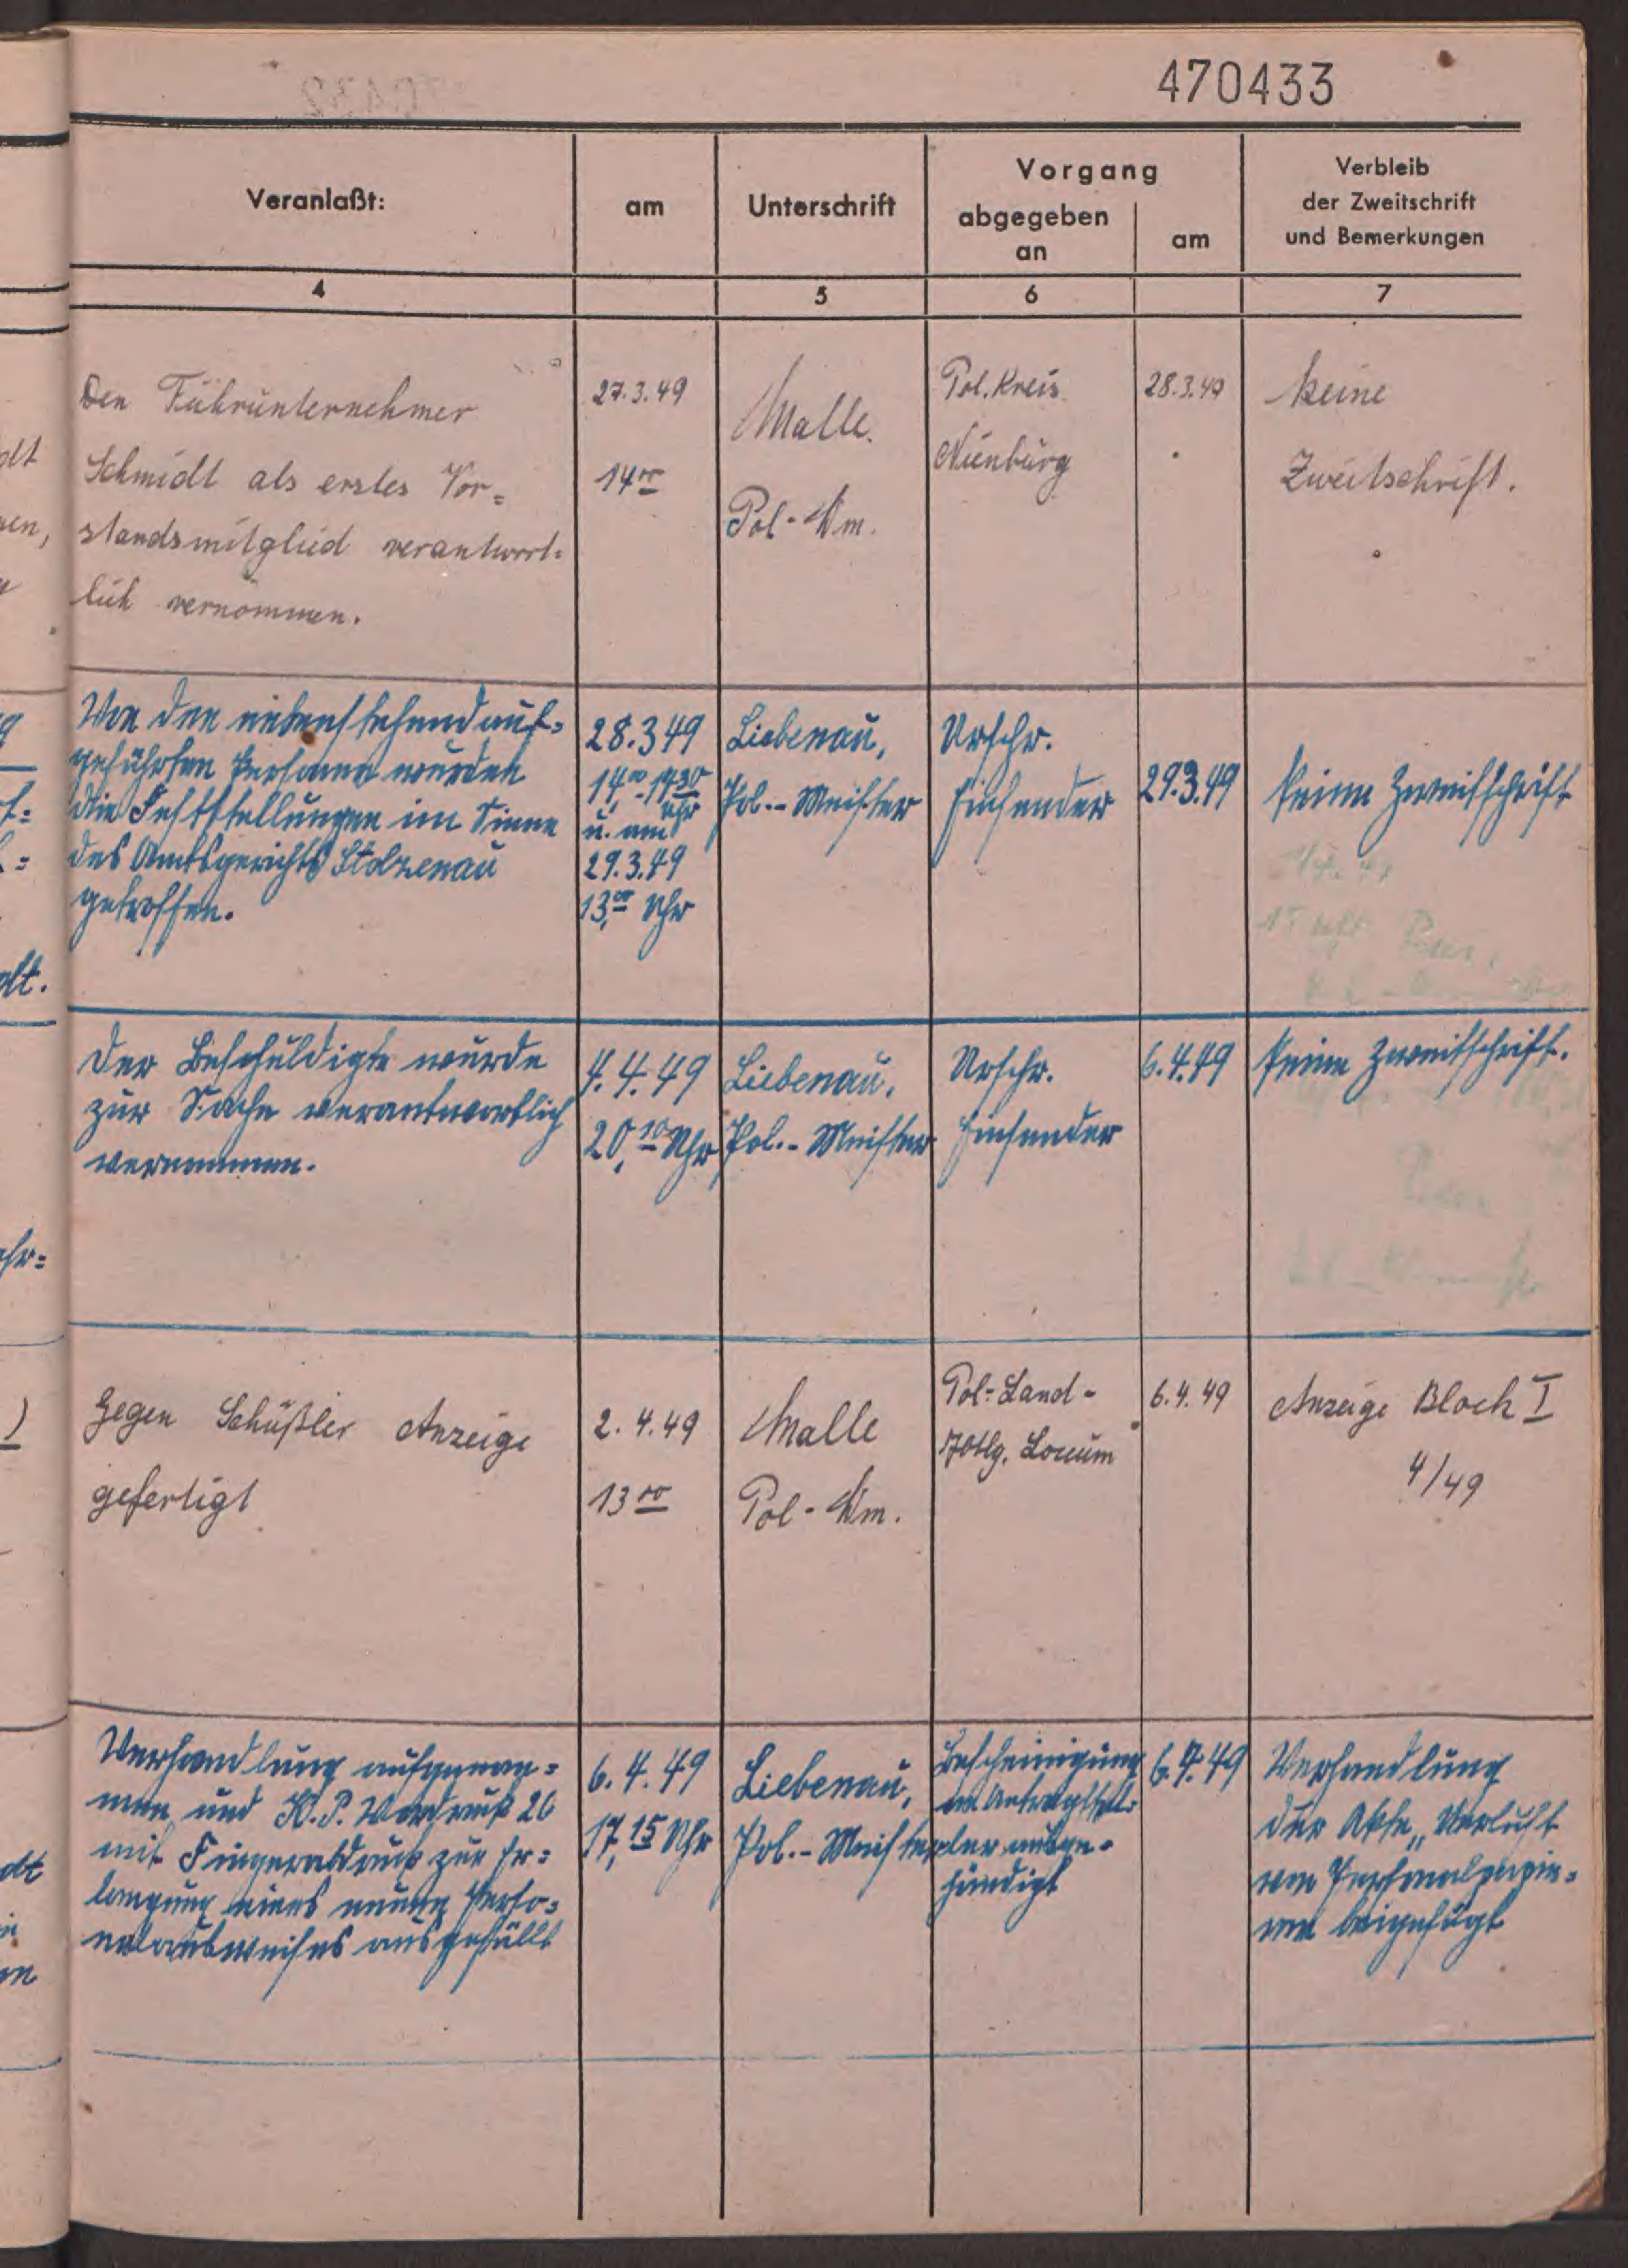 470433
Veranlaßt:
am
Unterschrift
Vorgang
abgegeben
an
am
Verbleib
der Zweitschrift
und Bemerkungen
4
5
6
7
Den Führunternehmer
Schmidt als erstes Vor=
standsmitglied verantwort=
lich vernommen.
27.3.49
14⁰⁰
Malle.
Pol-Wm.
Pol. Kreis
Nienburg
28.3.49
keine
Zweitschrift.
Von den nebenstehend auf=
geführten Personen wurden
die Feststellungen im Sinne
des Amtsgerichts Stolzenau
getroffen.
28.3.49
14,⁰⁰-14³⁰
Uhr
u. am
29.3.49
13,⁰⁰ Uhr
Liebenau,
Pol.-Meister
Urschr.
Einsender
29.3.49
Keine Zweitschrift
Der Beschuldigte wurde
zur Sache verantwortlich
vernommen.
4.4.49
20,¹⁰ Uhr
Liebenau,
Pol.-Meister
Urschr.
Einsender
6.4.49
Keine Zweitschrift.
Gegen Schüßler Anzeige
gefertigt
2.4.49
13⁰⁰
Malle
Pol-Wm.
Pol-Land-
Abtlg. Loccum
6.4.49
Anzeige Block I
4/49
Verhandlung aufgenom=
men und K.P. Vordruck 26
mit Fingerabdruck zur Er=
langung eines neuen Perso=
nalausweises ausgefüllt
6.4.49
17,¹⁵ Uhr
Liebenau,
Pol.-Meister
Bescheinigung
an Antragstel=
ler ausge=
händigt
6.4.49
Verhandlung
der Akte „Verlust
von Personalpapie=
ren beigefügt